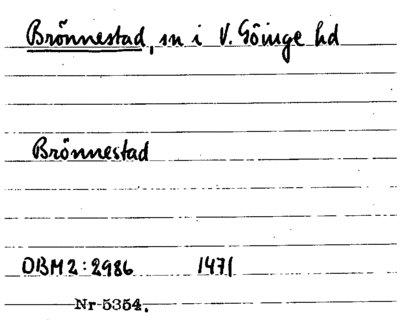 Brönnestad, sn i V. Göinge hd
Brönnestad
DBM2:2986 1471
Nr 5354.